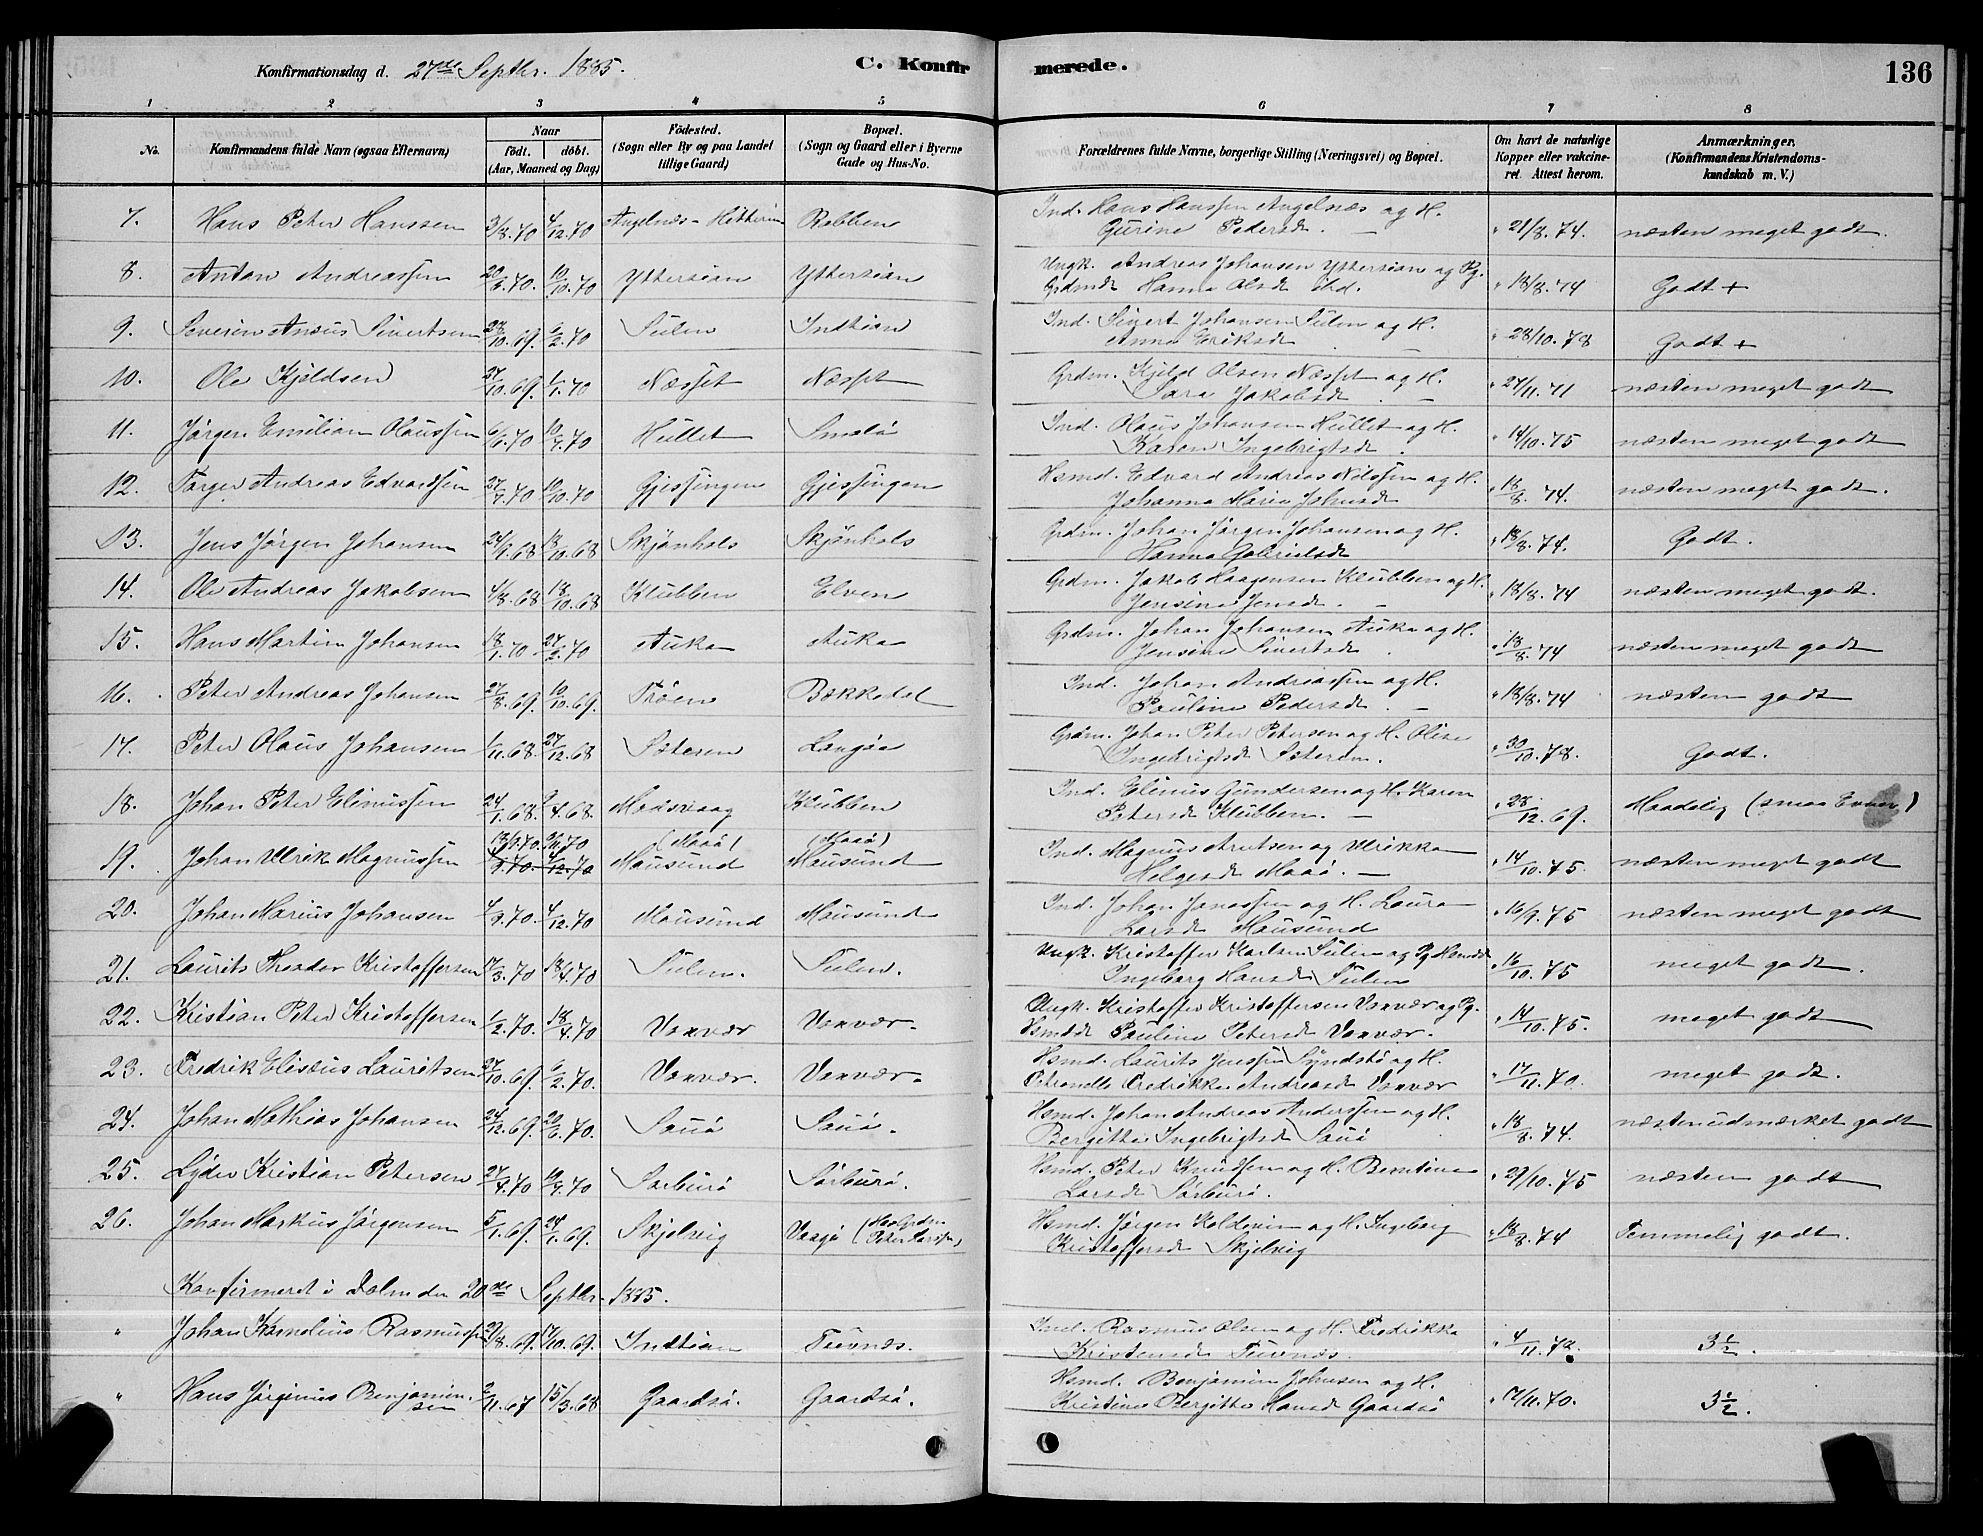 Konfirmationsdag d. 27de Septbr. 1885.
C. Konfirmerede.
136
1 2 3 4 5 6 7 8
No. Konfirmandens fulde Navn (ogsaa Efternavn) Naar født. døbt. (Aar, Maaned og Dag) Fødested. (Sogn eller By og paa Landet tillige Gaard) Bopæl. (Sogn og Gaard eller i Byerne Gade og Hus-No. Forældrenes fulde Navne, borgerlige Stilling (Næringsvei) og Bopæl. Om havt de naturlige Kopper eller vakcineret. Attest herom. Anmærkninger. (Konfirmandens Kristendomskundskab m. V.)
7. Hans Peter Hanssen 3/8.70 4/12.70 Angelnæs - Hitteren Rabben Ind. Hans Hanssen Angelnæs og H.
Gurine Pedersd. — " 21/8.74. næsten meget godt.
8. Anton Andreassen 20/6.70. 10/10.70 Yttersian Yttersian Ungk. Andreas Johansen Yttersian og Pg.
Grdmdt Hanna Olsd. ibd. " 18/8.74 Godt +
9. Severin Ansus Sivertsen 28/10.69. 6/2.70 Sulen Indtian Ind. Sivert Johansen Sulen og H.
Anna Eriksd. — " 28/10.78 Godt +
10. Ole Kjeldsen 27/10.69. 1/7.70 Næsset Næsset Grdm. Kjeld Olsen Næsset og H.
Sara Jakobsd. — " 27/11.71 næsten meget godt
11. Jørgen Emilian Olaussen 6/6.70 10/7.70 Hullet Smelø Ind. Olaus Johansen Hullet og H.
Karen Ingebrigtsd. " 14/10.75 næsten meget godt
12. Torger Andreas Edvardsen 27/7.70 10/10.70 Gjessingen Gjessingen Hsmd. Edvard Andreas Nilssen og H.
Johanna Marie Johnsd. " 18/8.74. næsten meget godt.
13. Jens Jørgen Johansen 24/9.68 18/10.68 Skjønhals Skjønhals Grdm. Johan Jørgen Johansen og H.
Hanna Gabrielsd. " 18/8.74. Godt.
14. Ole Andreas Jakobsen 4/8.68 18/10.68 Klubben Elven Grdm. Jakob Haagensen Klubben og H.
Jensine Jensd. — " 18/8.74 næsten meget godt.
15. Hans Martin Johansen 18/1.70 27/2.70 Auka Auka Grdm. Johan Johansen Auka og H.
Jensine Sivertsd. " 18/8.74 næsten meget godt
16. Peter Andreas Johansen 27/8.69 10/10.69. Trøen Bekkadal Ind. Johan Andreassen og H.
Pauline Pedersd. — " 18/8.74 næsten godt
17. Peter Olaus Johansen 1/11.68. 27/12.68 Sæteren Langøen Grdm. Johan Peter Petersen og H. Oline
Ingebrigtsd. Sæteren. " 30/10.78. Godt.
18. Johan Peter Elinussen 24/1.68. /4.68. Madsvaag Klubben Ind. Elinus Gundersen og H. Karen
Petersd. Klubben. — " 28/12.69. Maadelig (smaa Evner)
19. Johan Ulrik Magnussen 18/9.70. /11.70 (Maaø) Mausund (Maaø) Mausund Ind. Magnus Arntsen og Ulrikka
Helgesd. Maaø. — " 14/10.75. næsten meget godt
20. Johan Marius Johansen 4/9.70. 4/12.70 Mausund Mausund Ind. Johan Jonassen og H. Laura
Larsd. Mausund " 16/9.75 næsten meget godt
21. Laurits Theodor Kristoffersen 17/3.70 18/4.70 Sulen. Sulen. Ungk. Kristoffer Karlsen Sulen og Pg. Hsmdt
Ingeborg Hansd. Sulen " 16/10.75 meget godt.
22. Kristian Peter Kristoffersen 1/2.70. 18/4.70 Vanvær Vanvær. Ungk. Kristoffer Kristoffersen Vanvær og Pg.
Hsmddt Pauline Petersd. Vanvær. " 14/10.75. meget godt
23. Fredrik Elisæus Lauritsen 27/10.69. 6/2.70. Vanvær. Vanvær. Hsmd. Laurits Jenssen Syndstø og H.
Petronelle Fredrikke Andreasd. Vanvær " 17/11.70. meget godt.
24. Johan Mathias Johansen 24/12.69. 20/6.70. Sauø Sauø. Hsmd. Johan Andreas Anderssen og H.
Bergitta Ingebrigtsd. Sauø " 18/8.74. næsten udmærket godt
25. Lyder Kristian Petersen 27/4.70 10/7.70 Sørburø Sørburø. Hsmd. Peter Knudssen og H. Berntine
Larsd. Sørburø. " 29/10.75 næsten godt
26. Johan Markus Jørgensen 5/1.69. 24/1.69. Skjelvig Vaagø (Hos Grdm. Peter Larssen) Hsmd. Jørgen Koldevin og H. Ingeborg
Kristoffersd. Skjelvig " 18/8.74 Temmelig godt.
Konfirmeret i Dolm den 20de Septbr. 1885.
" Johan Kornelius Rasmussen 29/8.69. 17/10.69. Indtian Tuvnæs. Ind. Rasmus Olsen og H. Fredrikka
Kristensd. Tuvnæs. " 4/11.72. 3½.
" Hans Jørginus Benjaminsen 2/11.67 15/3.68 Gaardsø Gaardsø. Hsmd. Benjamin Johnsen og H.
Kristine Bergitta Hansd. Gaardsø " 17/11.70. 3½.